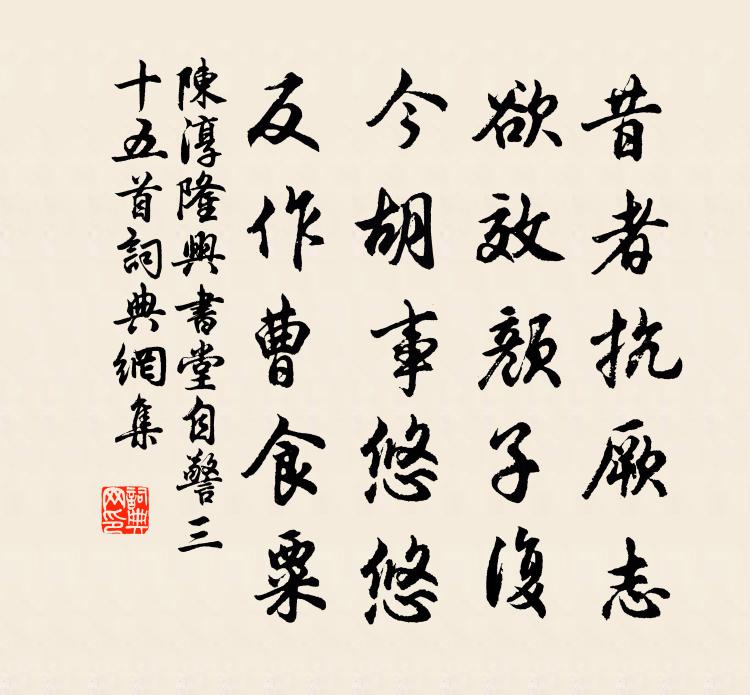 昔者抗厥志
欲效顏子復
今胡事悠悠
反作曹食粟
陳淳隆興書堂自警三
十五首詞典網集
詞典网印